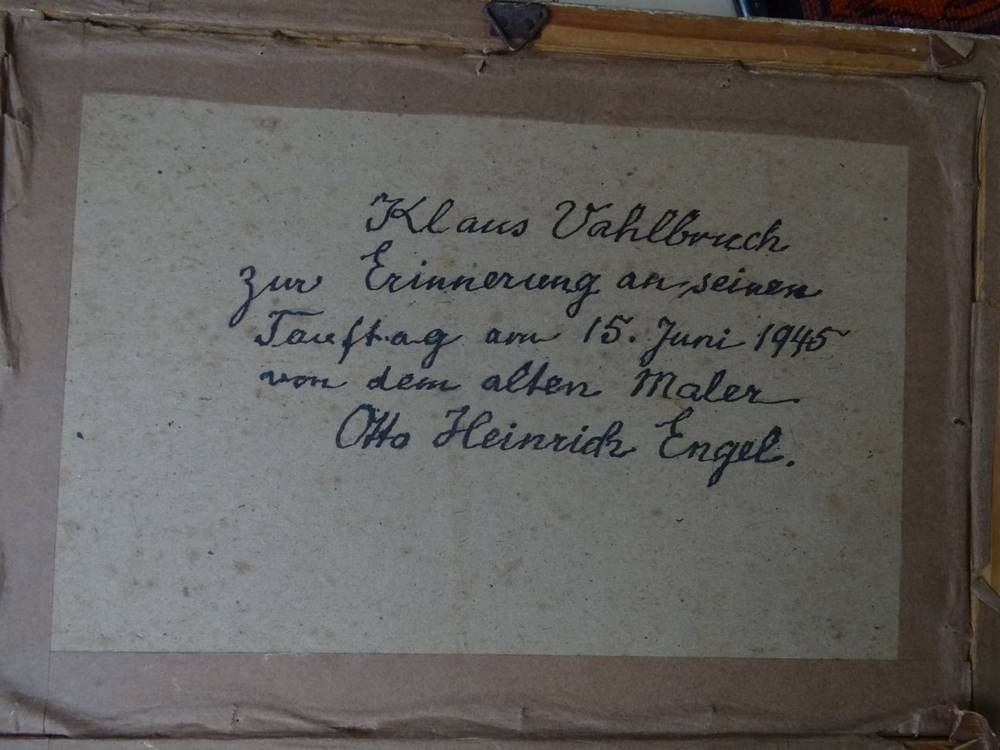 Klaus Vahlbruch
zur Erinnerung an seinen
Tauftag am 15. Juni 1945
von dem alten Maler
Otto Heinrich Engel.